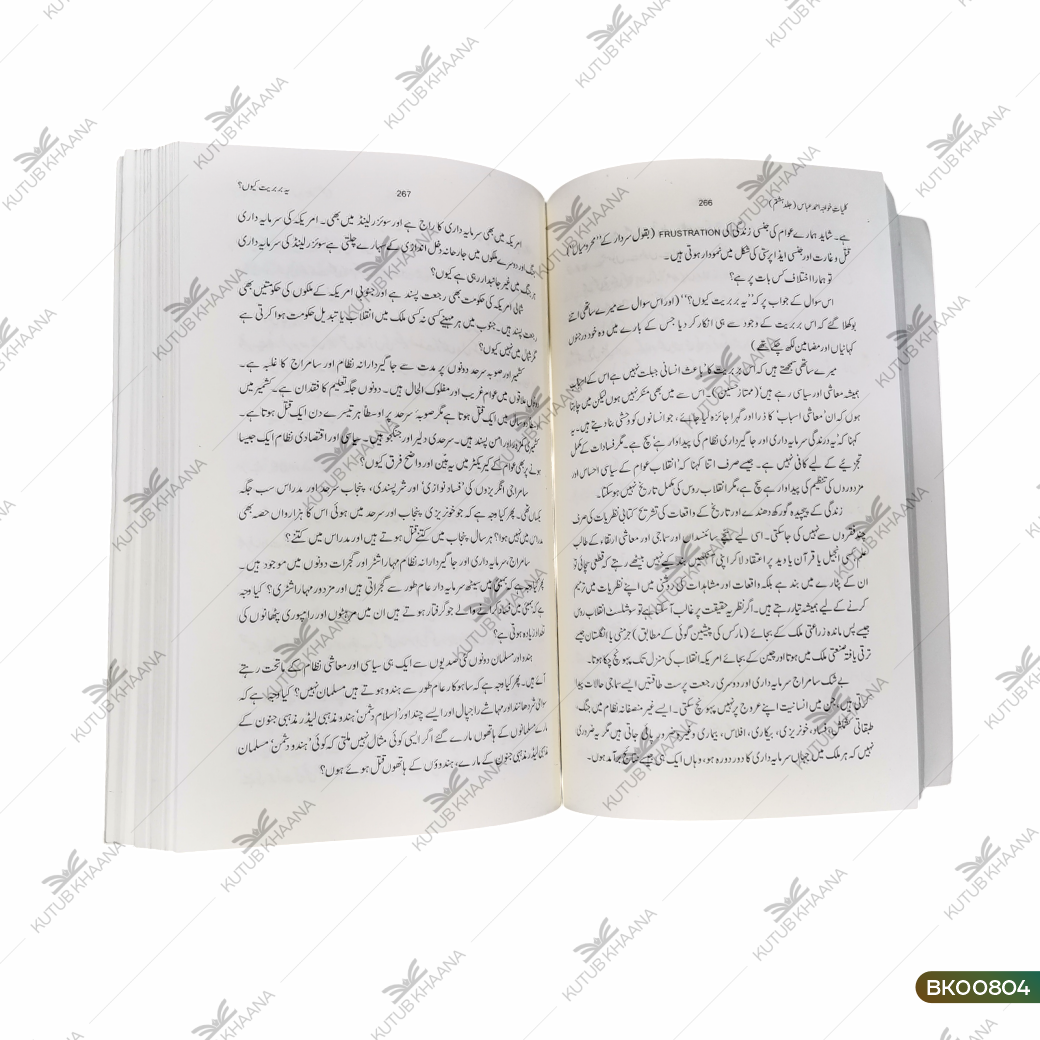 کلیاتِ خواجہ احمد عباس (جلد ہشتم)
266
ہے۔ شاید ہمارے عوام کی جنسی زندگی کی FRUSTRATION (بقول سردار کے ''محرومیاں'')
قتل و غارت اور جنسی ایذا پرستی کی شکل میں نمودار ہوتی ہیں۔
تو ہمارا اختلاف کس بات پر ہے؟
اس سوال کے جواب پر کہ ''یہ بربریت کیوں؟'' (اور اس سوال سے میرے ساتھی اتنے
بوکھلا گئے کہ اس بربریت کے وجود سے ہی انکار کر دیا جس کے بارے میں وہ خود درجنوں
کہانیاں اور مضامین لکھ چکے تھے)
میرے ساتھی سمجھتے ہیں کہ اس بربریت کا 'باعث انسانی جبلت نہیں ہے اس کے اسباب
ہمیشہ معاشی اور سیاسی رہے ہیں (ممتاز حسین)۔ اس سے میں بھی منکر نہیں ہوں لیکن میں چاہتا
ہوں کہ ان 'معاشی اسباب' کا ذرا اور گہرا جائزہ لیا جائے، جو انسانوں کو وحشی بنا دیتے ہیں۔ یہ
کہنا کہ 'یہ درندگی سرمایہ داری اور جاگیرداری نظام کی پیداوار ہے' سچ ہے۔ مگر فسادات کے مکمل
تجزیے کے لیے کافی نہیں ہے۔ جیسے صرف اتنا کہنا کہ 'انقلاب عوام کے سیاسی احساس اور
مزدوروں کی تنظیم کی پیداوار ہے سچ ہے، مگر انقلاب روس کی مکمل تاریخ نہیں ہو سکتا۔
زندگی کے پیچیدہ گورکھ دھندے اور تاریخ کے واقعات کی تشریح کتابی نظریات کی صرف
چند فقروں سے نہیں کی جا سکتی۔ اسی لیے سچے سائنسدان اور سماجی اور معاشی ارتقاء کے طالب
علم کسی انجیل یا قرآن یا وید پر اعتقاد لا کر اپنی آنکھیں بند کیے نہیں بیٹھے رہتے کہ قطعی سچائی تو
ان کے پٹارے میں بند ہے بلکہ واقعات اور مشاہدات کی روشنی میں اپنے نظریات میں ترمیم
کرنے کے لیے ہمیشہ تیار رہتے ہیں۔ اگر نظریہ حقیقت پر غالب آ سکتا ہے تو سوشلسٹ انقلاب روس
جیسے پس ماندہ زراعتی ملک کے بجائے (مارکس کی پیشین گوئی کے مطابق) جرمنی یا انگلستان جیسے
ترقی یافتہ صنعتی ملک میں ہوتا اور چین کے بجائے امریکہ انقلاب کی منزل تک پہونچ چکا ہوتا۔
بے شک سامراج سرمایہ داری اور دوسری رجعت پرست طاقتیں ایسے سماجی حالات پیدا
کرتی ہیں، جن میں انسانیت اپنے عروج پر نہیں پہونچ سکتی۔ ایسے غیر منصفانہ نظام میں جنگ،
طبقاتی کشمکش، فساد، خونریزی، بیکاری، افلاس، بیماری وغیرہ ضرور پائی جاتی ہیں مگر یہ ضروری
نہیں کہ ہر ملک میں جہاں سرمایہ داری کا دور دورہ ہو، وہاں ایک ہی جیسے نتائج برآمد ہوں۔
267
یہ بربریت کیوں؟
امریکہ میں بھی سرمایہ داری کا راج ہے اور سوئزرلینڈ میں بھی۔ امریکہ کی سرمایہ داری
جنگ اور دوسرے ملکوں میں جارحانہ دخل اندازی کے سہارے چلتی ہے سوئزرلینڈ کی سرمایہ داری
ہر جنگ میں غیر جانبدار رہی ہے کیوں؟
شمالی امریکہ کی حکومت بھی رجعت پسند ہے اور جنوبی امریکہ کے ملکوں کی حکومتیں بھی
رجعت پسند ہیں۔ جنوب میں ہر مہینے کسی نہ کسی ملک میں انقلاب یا تبدیل حکومت ہوا کرتی ہے
مگر شمال میں نہیں کیوں؟
کشمیر اور صوبہ سرحد دونوں پر مدت سے جاگیردارانہ نظام اور سامراج کا غلبہ ہے۔
دونوں علاقوں میں عوام غریب اور مفلوک الحال ہیں۔ دونوں جگہ تعلیم کا فقدان ہے۔ کشمیر میں
چند سال میں ایک قتل ہوتا ہے مگر صوبۂ سرحد پر اوسطاً ہر تیسرے دن ایک قتل ہوتا ہے۔
کشمیری کمزور اور امن پسند ہیں۔ سرحدی دلیر اور جنگجو ہیں۔ سیاسی اور اقتصادی نظام ایک جیسا
ہونے پر بھی عوام کے کیریکٹر میں یہ بیّن اور واضح فرق کیوں؟
سامراجی انگریزوں کی 'فساد نوازی' اور شر پسندی، پنجاب سرحد اور مدراس سب جگہ
یکساں تھی۔ پھر کیا وجہ ہے کہ جو خونریزی پنجاب اور سرحد میں ہوئی اس کا ہزارواں حصہ بھی
مدراس میں نہیں ہوا؟ ہر سال پنجاب میں کتنے قتل ہوتے ہیں اور مدراس میں کتنے؟
سامراج، سرمایہ داری اور جاگیردارانہ نظام مہاراشٹر اور گجرات دونوں میں موجود ہیں۔
پھر کیا وجہ ہے کہ بمبئی میں سیٹھ سرمایہ دار عام طور سے گجراتی ہیں اور مزدور مہاراشٹری؟ کیا وجہ
ہے کہ بمبئی میں فساد کرانے والے جو گرفتار ہوتے ہیں ان میں مرہٹوں اور رامپوری پٹھانوں کی
تعداد زیادہ ہوتی ہے؟
ہندو اور مسلمان دونوں کئی صدیوں سے ایک ہی سیاسی اور معاشی نظام کے ماتحت رہتے
آئے ہیں۔ پھر کیا وجہ ہے کہ ساہوکار عام طور سے ہندو ہوتے ہیں مسلمان نہیں؟ کیا وجہ ہے کہ
سوامی شردھانند اور مہاشے راجپال اور ایسے چند اور 'اسلام دشمن' ہندو مذہبی لیڈر مذہبی جنون کے
مارے مسلمانوں کے ہاتھوں مارے گئے اگر ایسی کوئی مثال نہیں ملتی کہ کوئی 'ہندو دشمن' مسلمان
لیڈر مذہبی جنون کے مارے، ہندوؤں کے ہاتھوں قتل ہوئے ہوں؟
KUTUB KHAANA
BK00804